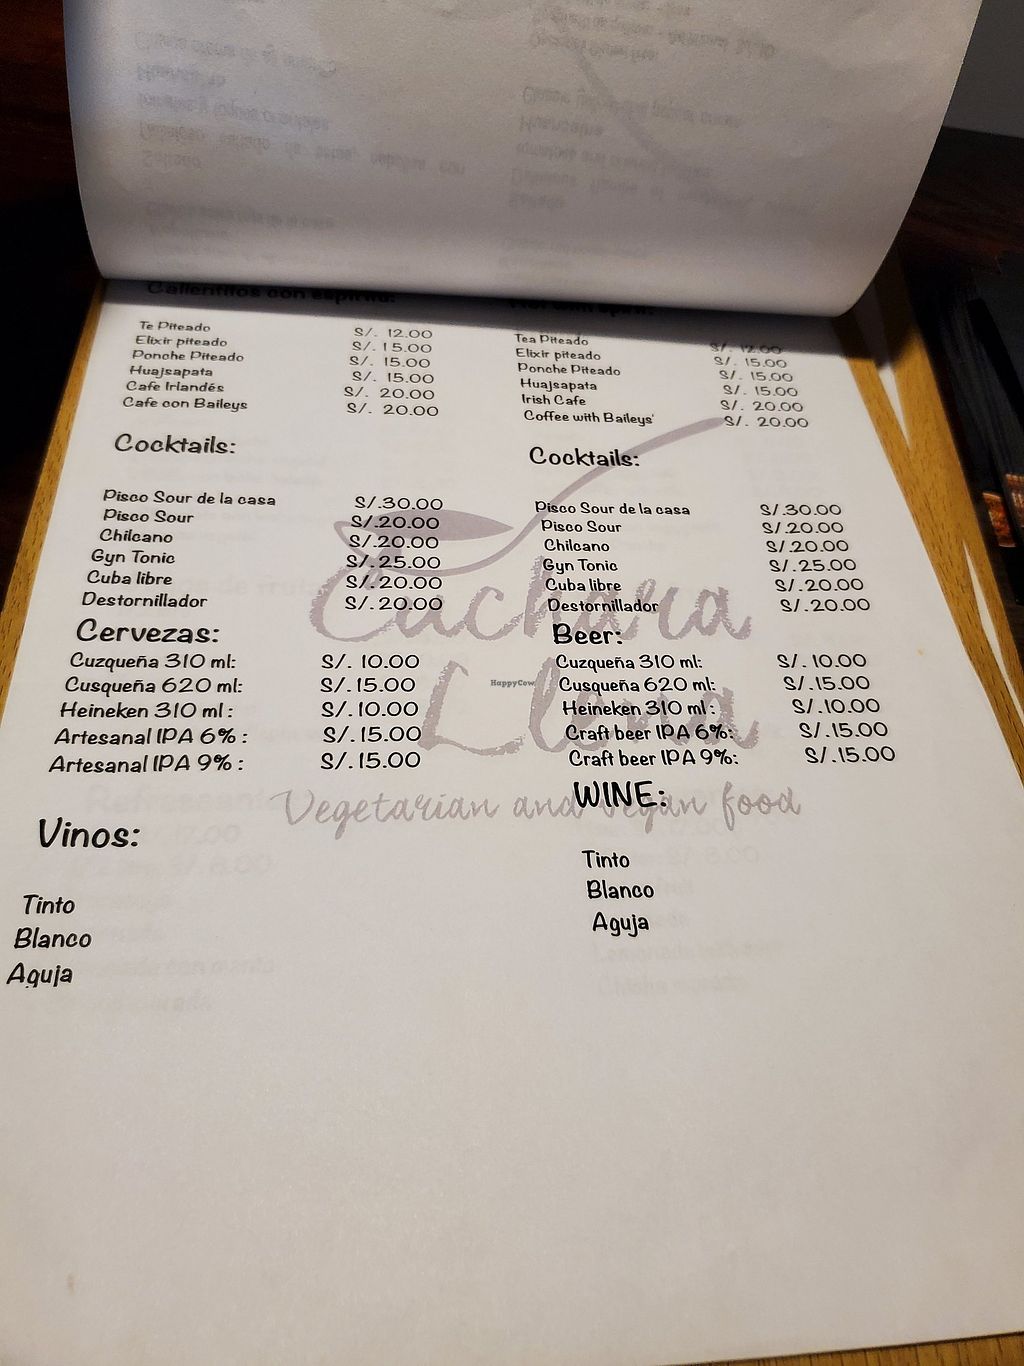 Calientitos con espiritu:
Te Piteado S/. 12.00
Elixir piteado S/. 15.00
Ponche Piteado S/. 15.00
Huajsapata S/. 15.00
Cafe Irlandés S/. 20.00
Cafe con Baileys S/. 20.00
Cocktails:
Pisco Sour de la casa S/.30.00
Pisco Sour S/.20.00
Chilcano S/.20.00
Gyn Tonic S/.25.00
Cuba libre S/.20.00
Destornillador S/.20.00
Cervezas:
Cuzqueña 310 ml: S/. 10.00
Cusqueña 620 ml: S/.15.00
Heineken 310 ml : S/.10.00
Artesanal IPA 6% : S/.15.00
Artesanal IPA 9% : S/.15.00
Vinos:
Tinto
Blanco
Aguja
Tea Piteado S/. 12.00
Elixir piteado S/. 15.00
Ponche Piteado S/. 15.00
Huajsapata S/. 15.00
Irish Cafe S/. 20.00
Coffee with Baileys' S/. 20.00
Cocktails:
Pisco Sour de la casa S/.30.00
Pisco Sour S/.20.00
Chilcano S/.20.00
Gyn Tonic S/.25.00
Cuba libre S/.20.00
Destornillador S/.20.00
Beer:
Cuzqueña 310 ml: S/. 10.00
Cusqueña 620 ml: S/.15.00
Heineken 310 ml : S/.10.00
Craft beer IPA 6%: S/.15.00
Craft beer IPA 9%: S/.15.00
WINE:
Tinto
Blanco
Aguja
Cuchara
Llena
Vegetarian and vegan food
HappyCow